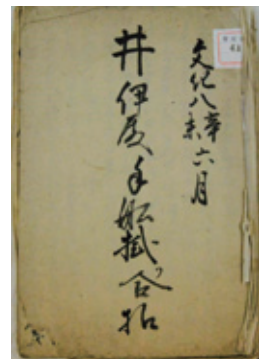 文化八辛未六月
井伊殿手舩掛合扣